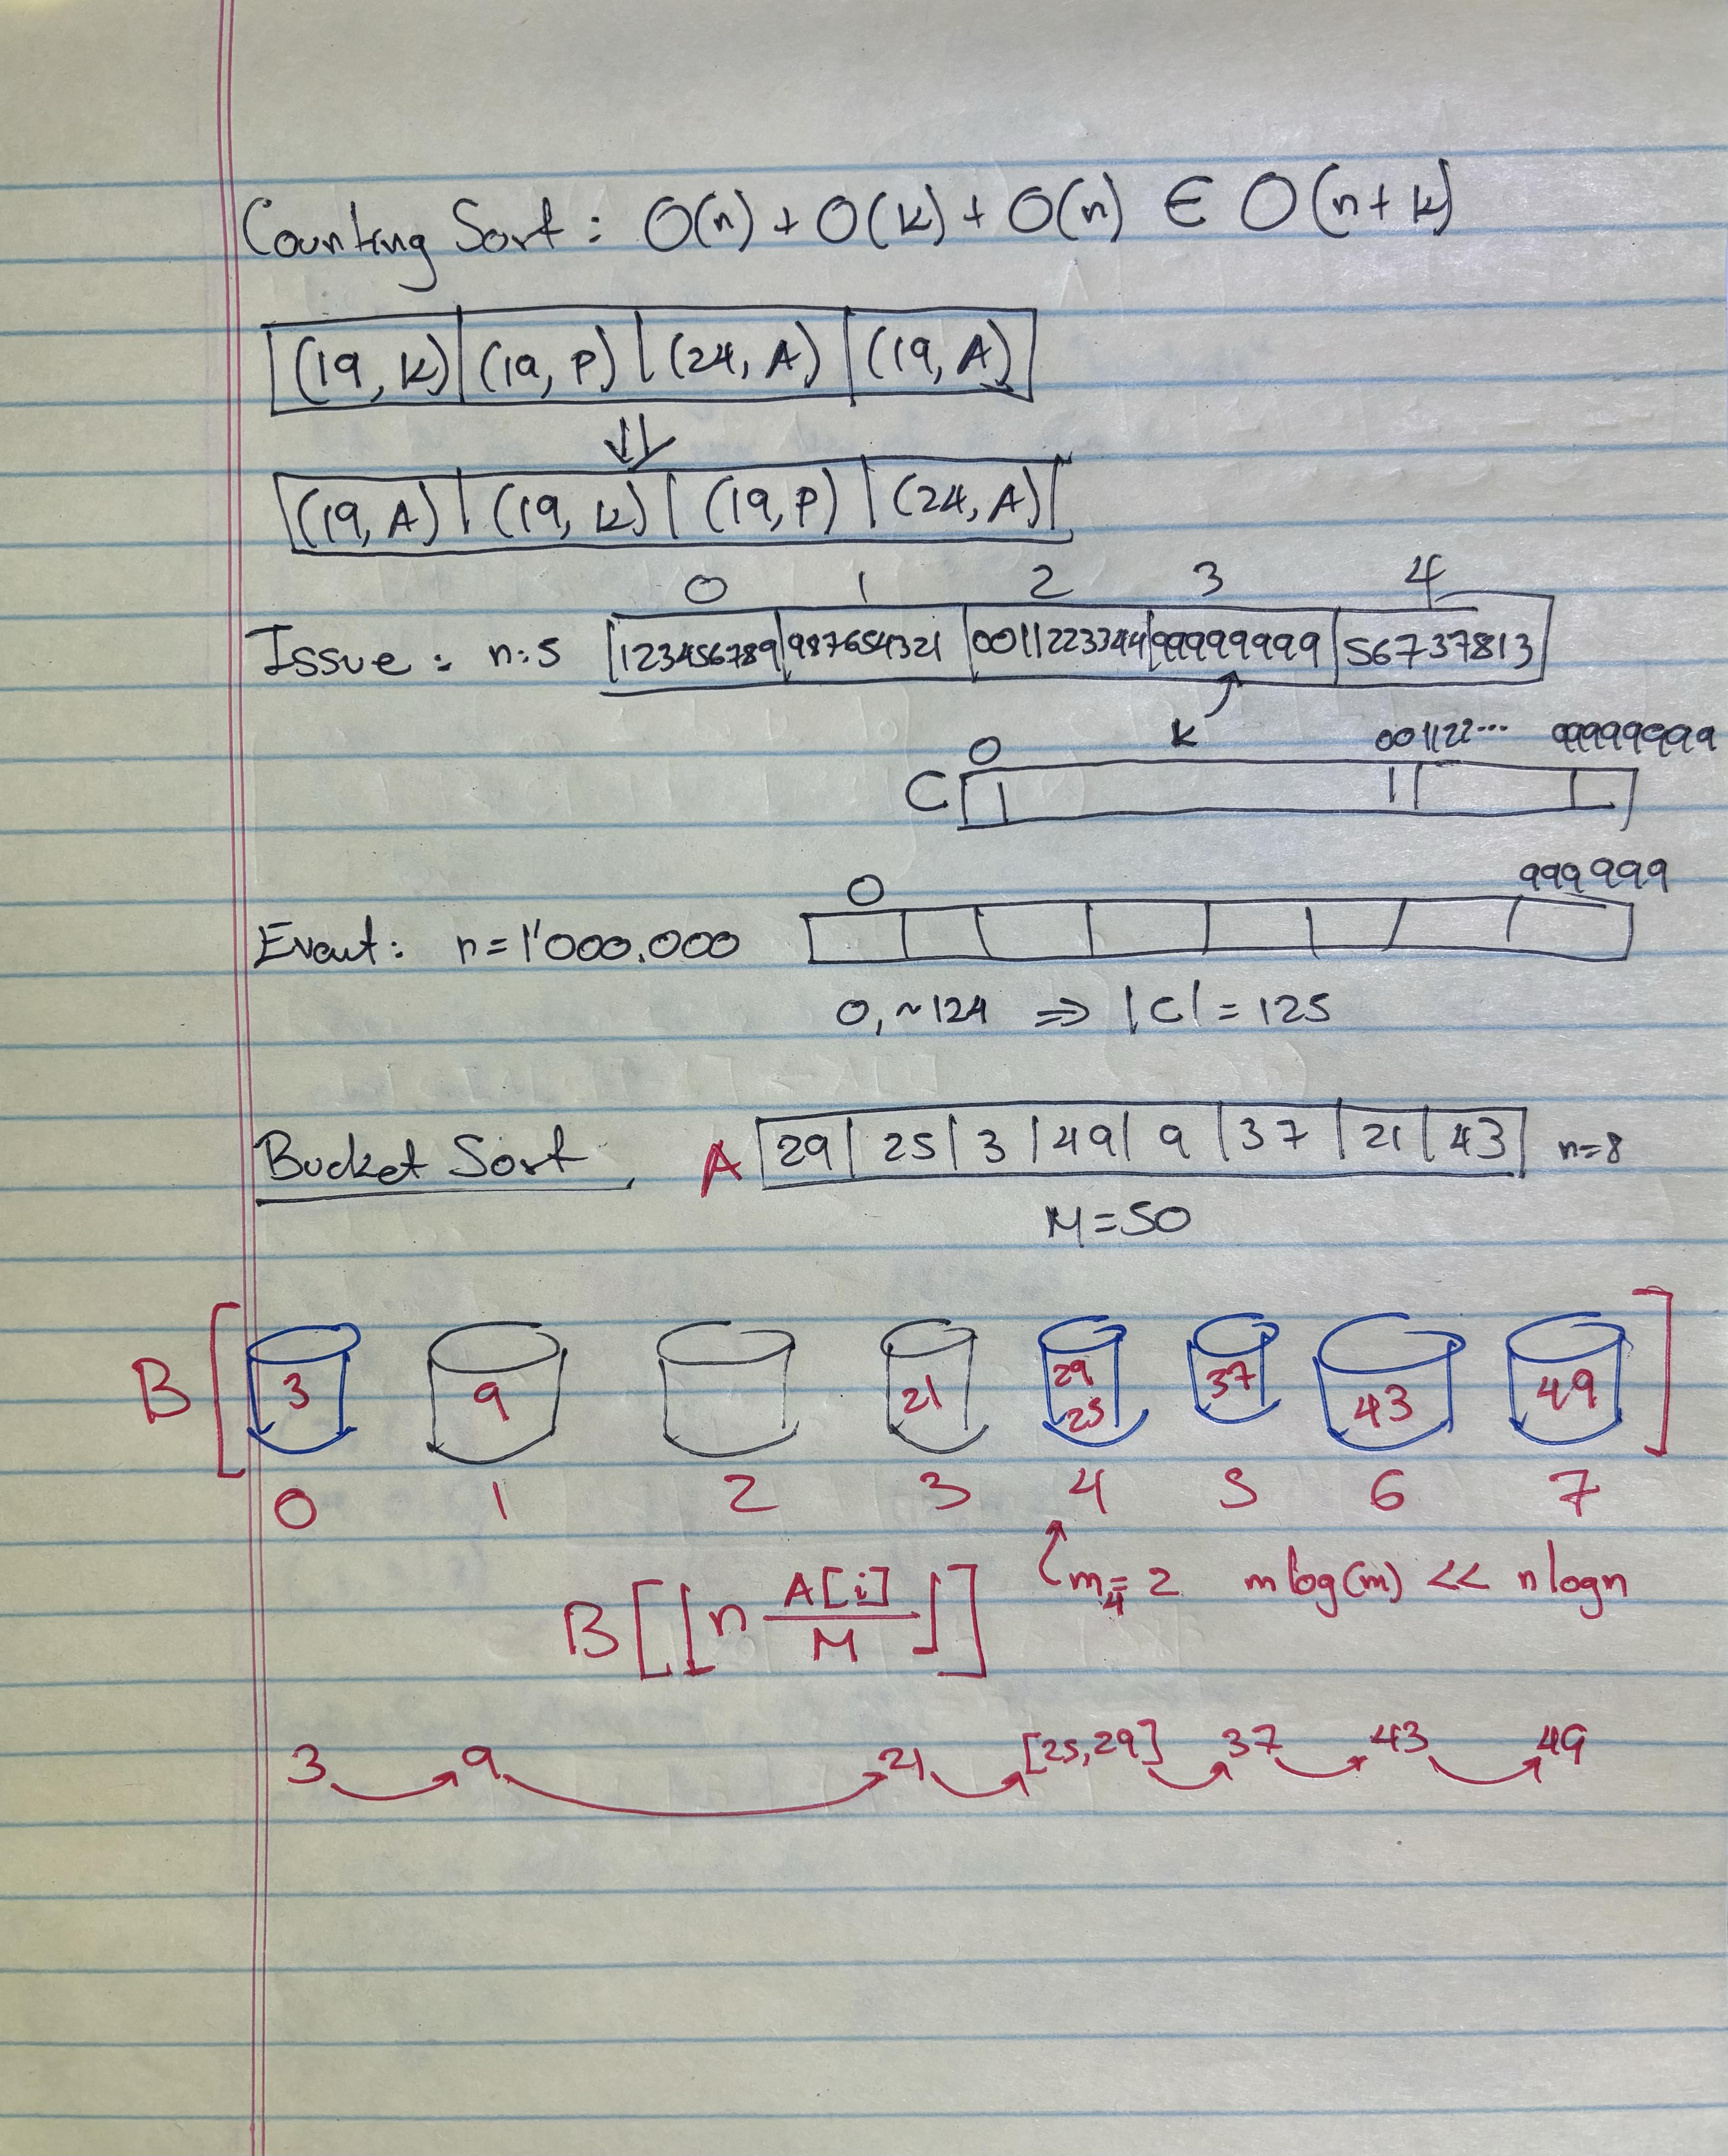 Counting Sort : O(n) + O(k) + O(n) ∈ O(n+k)
(19, K) (19, P) (24, A) (19, A)
⇓
(19, A) (19, K) (19, P) (24, A)
0 1 2 3 4
Issue : n:5 123456789 987654321 0011223344 99999999 56737813
k 0 001122... 99999999
C
0 999999
n=1'000.000
0, ~124 ⇒ |C| = 125
Bucket Sort A 29 25 3 49 9 37 21 43 n=8
M=50
B [ 3 9 21 29 25 37 43 49 ]
0 1 2 3 4 5 6 7
B[⌊n A[i]/M⌋] m₄=2 m log(m) << n log n
3 9 21 [25,29] 37 43 49